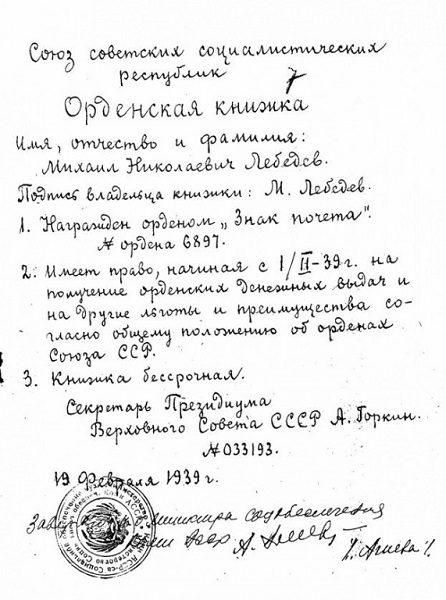 Союз советских социалистических
республик
Орденская книжка
Имя, отчество и фамилия:
Михаил Николаевич Лебедев.
Подпись владельца книжки: М. Лебедев.
1. Награжден орденом „Знак почета".
№ ордена 6897.
2. Имеет право, начиная с 1/II-39 г. на
получение орденских денежных выдач и
на другие льготы и преимущества со-
гласно общему положению об орденах
Союза ССР.
3. Книжка бессрочная.
Секретарь Президиума
Верховного Совета СССР А. Горкин.
№ 033193.
19 февраля 1939 г.
министра собобеспечения